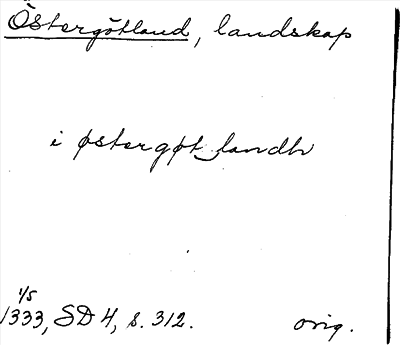 Östergötland, landskap
i østergøt landh
1/5
1333, SD 4, s. 312.
orig.